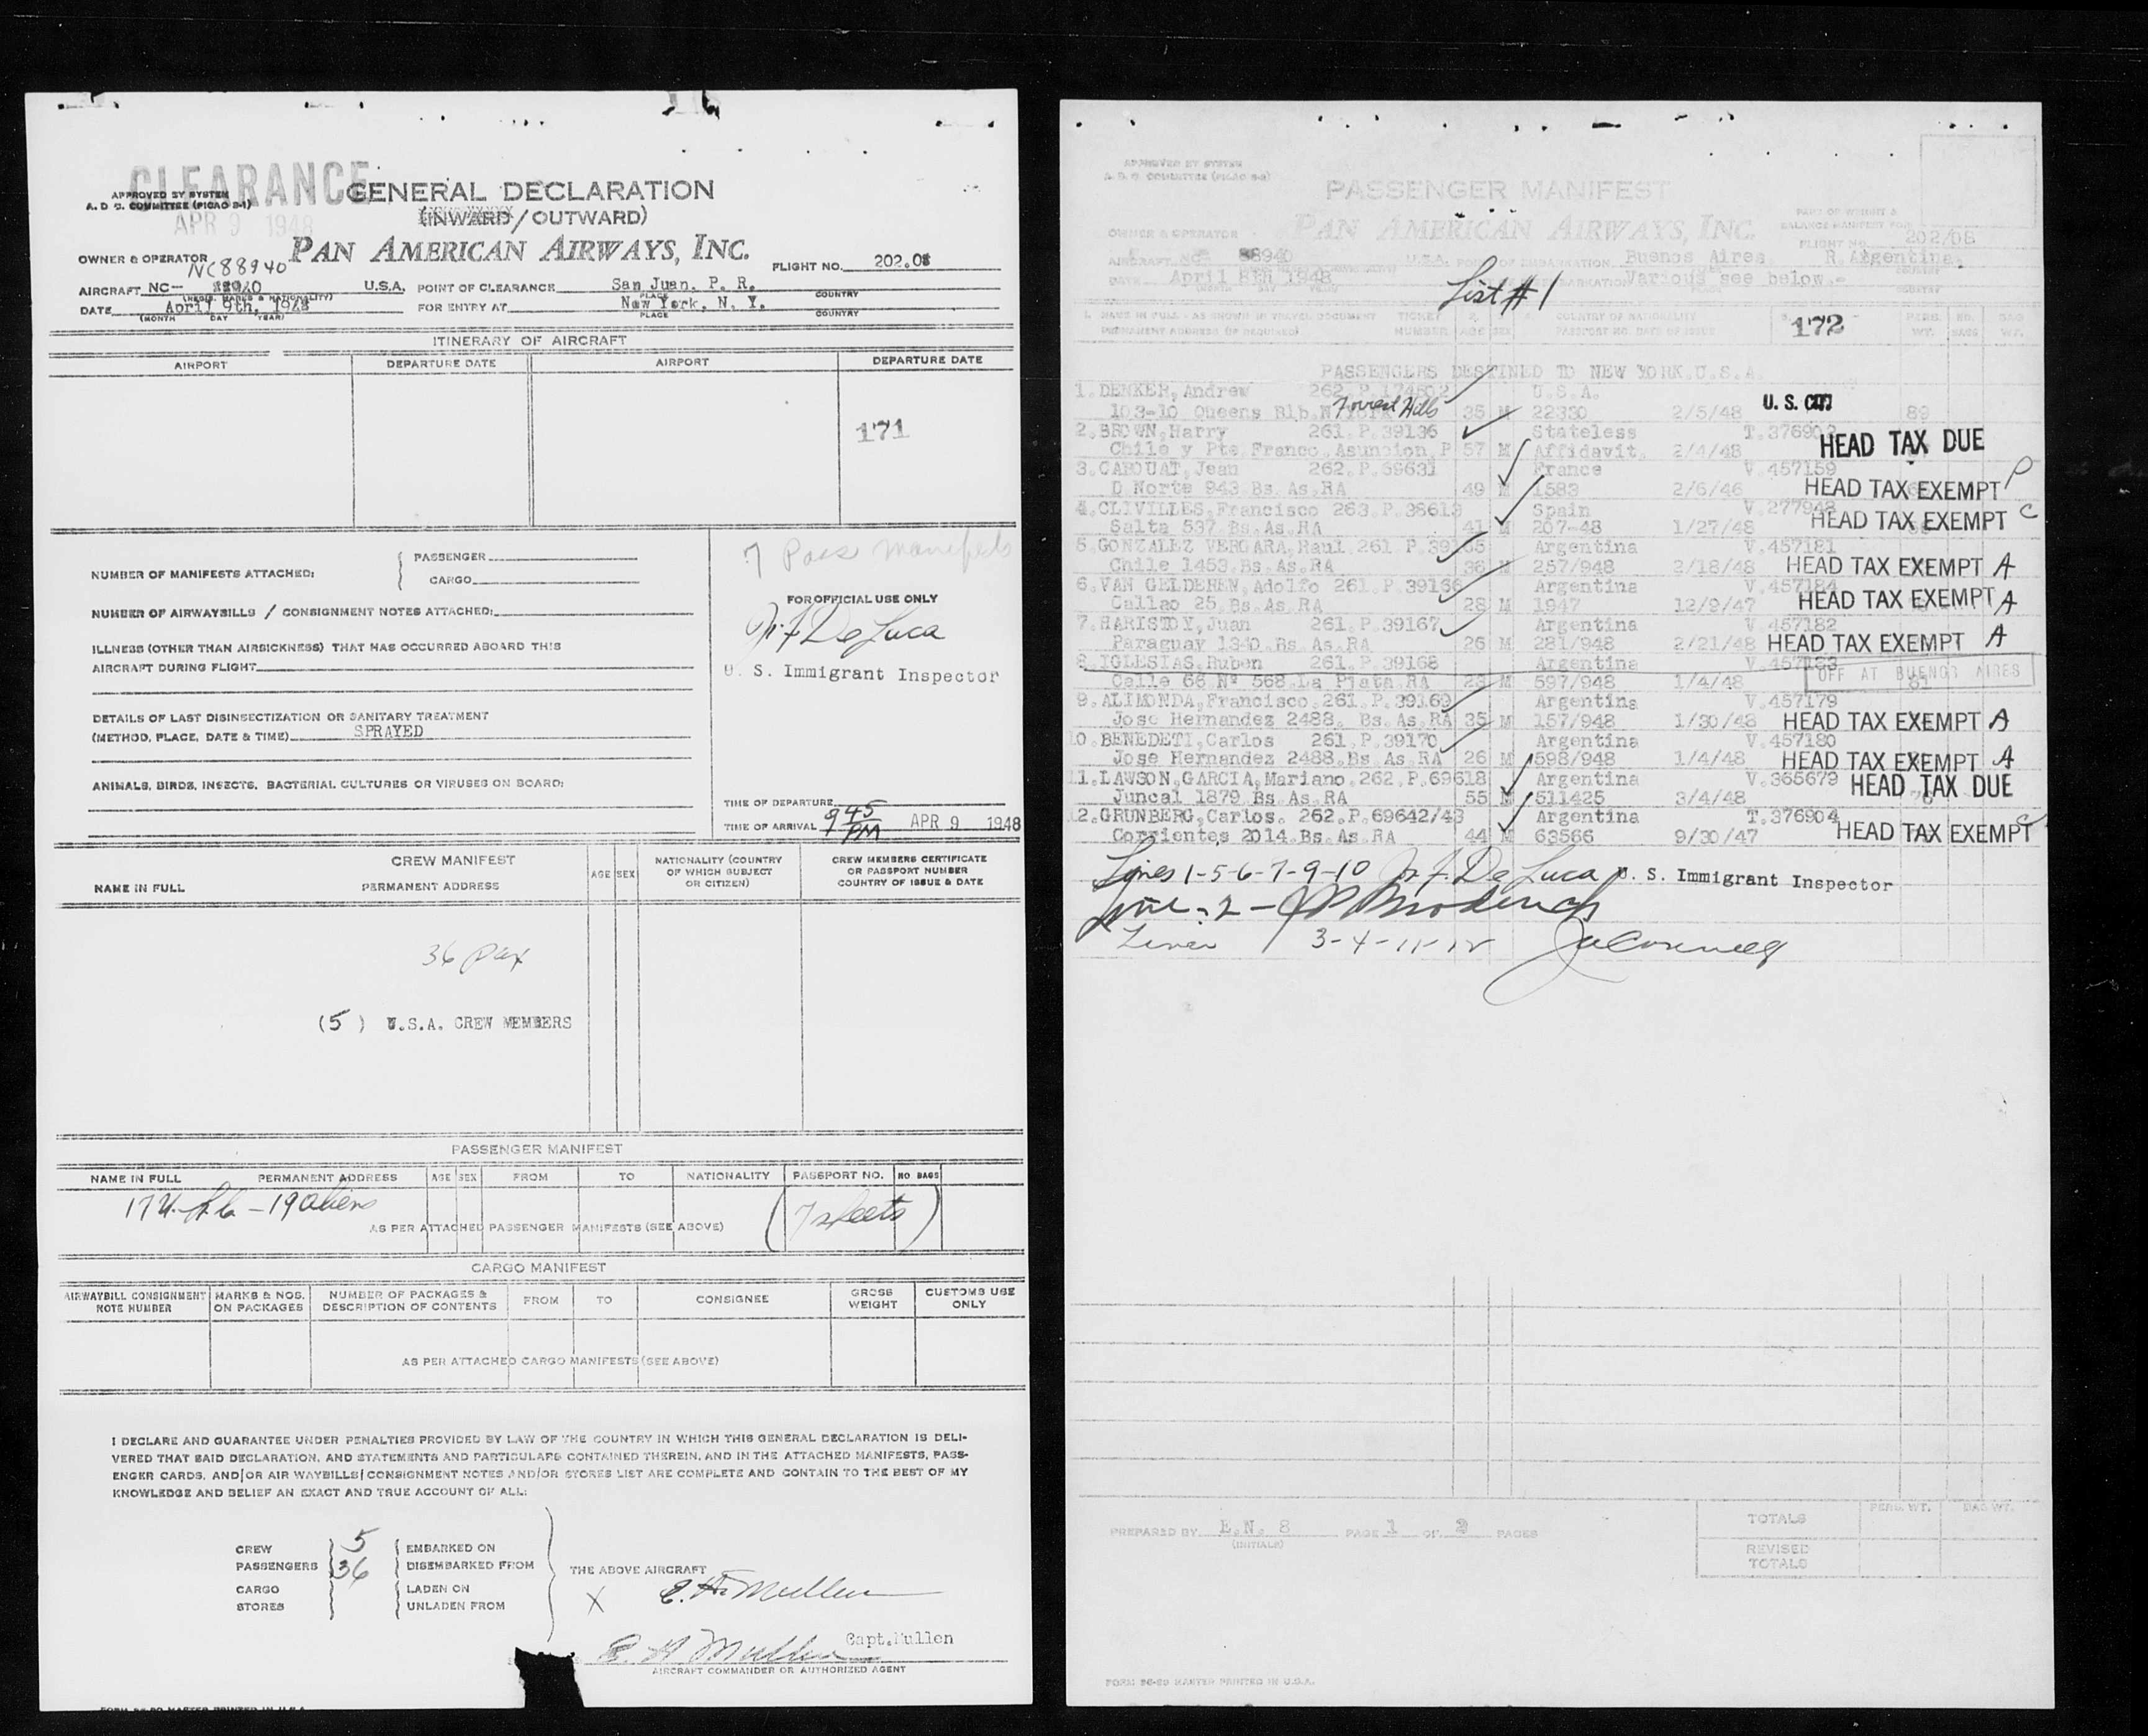 CLEARANCE
APR 9 1948
APPROVED BY SYSTEM
A. D. C. COMMITTEE (PICAO B-1)
GENERAL DECLARATION
(INWARD/OUTWARD)
PAN AMERICAN AIRWAYS, INC.
OWNER & OPERATOR
NC88940
FLIGHT NO. 202.05
AIRCRAFT NC- 88940 U.S.A. POINT OF CLEARANCE San Juan. P. R.
(REGIS. MARKS & NATIONALITY) PLACE COUNTRY
DATE April 9th, 1948 FOR ENTRY AT New York, N. Y.
(MONTH DAY YEAR) PLACE COUNTRY
ITINERARY OF AIRCRAFT
AIRPORT DEPARTURE DATE AIRPORT DEPARTURE DATE
171
NUMBER OF MANIFESTS ATTACHED:
PASSENGER
CARGO
7 Pass manifests
NUMBER OF AIRWAYBILLS / CONSIGNMENT NOTES ATTACHED:
FOR OFFICIAL USE ONLY
De Luca
U. S. Immigrant Inspector
ILLNESS (OTHER THAN AIRSICKNESS) THAT HAS OCCURRED ABOARD THIS
AIRCRAFT DURING FLIGHT
DETAILS OF LAST DISINSECTIZATION OR SANITARY TREATMENT
(METHOD, PLACE, DATE & TIME) SPRAYED
ANIMALS, BIRDS, INSECTS, BACTERIAL CULTURES OR VIRUSES ON BOARD:
TIME OF DEPARTURE
TIME OF ARRIVAL 9 45 PM APR 9 1948
CREW MANIFEST
NAME IN FULL PERMANENT ADDRESS AGE SEX NATIONALITY (COUNTRY OF WHICH SUBJECT OR CITIZEN) CREW MEMBERS CERTIFICATE OR PASSPORT NUMBER COUNTRY OF ISSUE & DATE
36 pax
(5) U.S.A. CREW MEMBERS
PASSENGER MANIFEST
NAME IN FULL PERMANENT ADDRESS AGE SEX FROM TO NATIONALITY PASSPORT NO. NO BAGS
17 U.S.C. - 19 aliens
(7 sheets)
AS PER ATTACHED PASSENGER MANIFESTS (SEE ABOVE)
CARGO MANIFEST
AIRWAYBILL CONSIGNMENT NOTE NUMBER MARKS & NOS. ON PACKAGES NUMBER OF PACKAGES & DESCRIPTION OF CONTENTS FROM TO CONSIGNEE GROSS WEIGHT CUSTOMS USE ONLY
AS PER ATTACHED CARGO MANIFESTS (SEE ABOVE)
I DECLARE AND GUARANTEE UNDER PENALTIES PROVIDED BY LAW OF THE COUNTRY IN WHICH THIS GENERAL DECLARATION IS DELI-
VERED THAT SAID DECLARATION, AND STATEMENTS AND PARTICULARS CONTAINED THEREIN, AND IN THE ATTACHED MANIFESTS, PASS-
ENGER CARDS, AND/OR AIR WAYBILLS/CONSIGNMENT NOTES AND/OR STORES LIST ARE COMPLETE AND CONTAIN TO THE BEST OF MY
KNOWLEDGE AND BELIEF AN EXACT AND TRUE ACCOUNT OF ALL:
CREW 5 EMBARKED ON
PASSENGERS 36 DISEMBARKED FROM
THE ABOVE AIRCRAFT
CARGO LADEN ON
STORES UNLADEN FROM
X E. H. Mullen
E. H. Mullen Capt. Mullen
AIRCRAFT COMMANDER OR AUTHORIZED AGENT
APPROVED BY SYSTEM
A. D. C. COMMITTEE (PICAO B-2)
PASSENGER MANIFEST
PAN AMERICAN AIRWAYS, INC.
OWNER & OPERATOR
PART OF WEIGHT &
BALANCE MANIFEST FOR
FLIGHT NO. 202/05
AIRCRAFT NC- 88940 U.S.A. POINT OF EMBARKATION Buenos Aires R. Argentina.
DATE April 8th 1948 Various see below.-
List #1
NAME IN FULL - AS SHOWN IN TRAVEL DOCUMENT TICKET COUNTRY OF NATIONALITY PERS. NO. BAG
PERMANENT ADDRESS (IF REQUIRED) NUMBER AGE SEX PASSPORT NO. DATE OF ISSUE WT. BAGS WT.
172
PASSENGERS DESTINED TO NEW YORK.U.S.A.
1.DENKER, Andrew 262.P.174802 U.S.A.
103-10 Queens Blb.N.York Forrest Hills 35 M 22330 2/5/48 U. S. CIT 89
2.BROWN, Harry 261.P.39136 Stateless T.376902
Chile y Pte.Franco.Asuncion.P 57 M Affidavit. 2/4/48 HEAD TAX DUE
3.CABOUAT, Jean 262.P.69631 France V.457159
D Norte 943 Bs.As.RA 49 M 1583 2/6/46 HEAD TAX EXEMPT P
4.CLIVILLES, Francisco 263.P.38613 Spain V.277948
Salta 537.Bs.As.RA 41 M 207-48 1/27/48 HEAD TAX EXEMPT C
5.GONZALEZ VERGARA, Raul 261 P.39165 Argentina V.457181
Chile 1453.Bs.As.RA 36 M 257/948 2/18/48 HEAD TAX EXEMPT A
6.VAN GELDEREN, Adolfo 261.P.39166 Argentina V.457184
Callao 25.Bs.As.RA 28 M 1947 12/9/47 HEAD TAX EXEMPT A
7.HARISTOY, Juan 261.P.39167 Argentina V.457182
Paraguay 1340.Bs.As.RA 26 M 281/948 2/21/48 HEAD TAX EXEMPT A
8.IGLESIAS, Ruben 261.P.39168 Argentina V.457183
Calle 66 Nº 568.La Plata.RA 23 M 597/948 1/4/48 OFF AT BUENOS AIRES
9.ALIMONDA, Francisco.261.P.39169 Argentina V.457179
Jose Hernandez 2488. Bs.As.RA 35 M 157/948 1/30/48 HEAD TAX EXEMPT A
10.BENEDETI, Carlos 261.P.39170 Argentina V.457180
Jose Hernandez 2488.Bs.As.RA 26 M 598/948 1/4/48 HEAD TAX EXEMPT A
11.LAWSON, GARCIA, Mariano.262.P.69618 Argentina V.365679
Juncal 1879 Bs.As.RA 55 M 511425 3/4/48 HEAD TAX DUE
12.GRUNBERG, Carlos. 262.P.69642/43 Argentina T.376904
Corrientes 2014.Bs.As.RA 44 M 63566 9/30/47 HEAD TAX EXEMPT C
Lines 1-5-6-7-9-10 De Luca U. S. Immigrant Inspector
Line - 2 -
Lines 3-4-11-12
PREPARED BY E.N. 8 PAGE 1 OF 2 PAGES
(INITIALS)
PERS. WT. BAG WT.
TOTALS
REVISED TOTALS
FORM 96-89 MASTER PRINTED IN U.S.A.